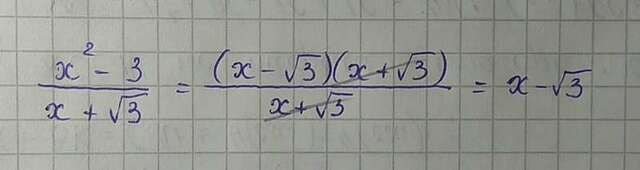 (x² - 3)/(x + √3) = ((x - √3)(x + √3))/(x + √3) = x - √3